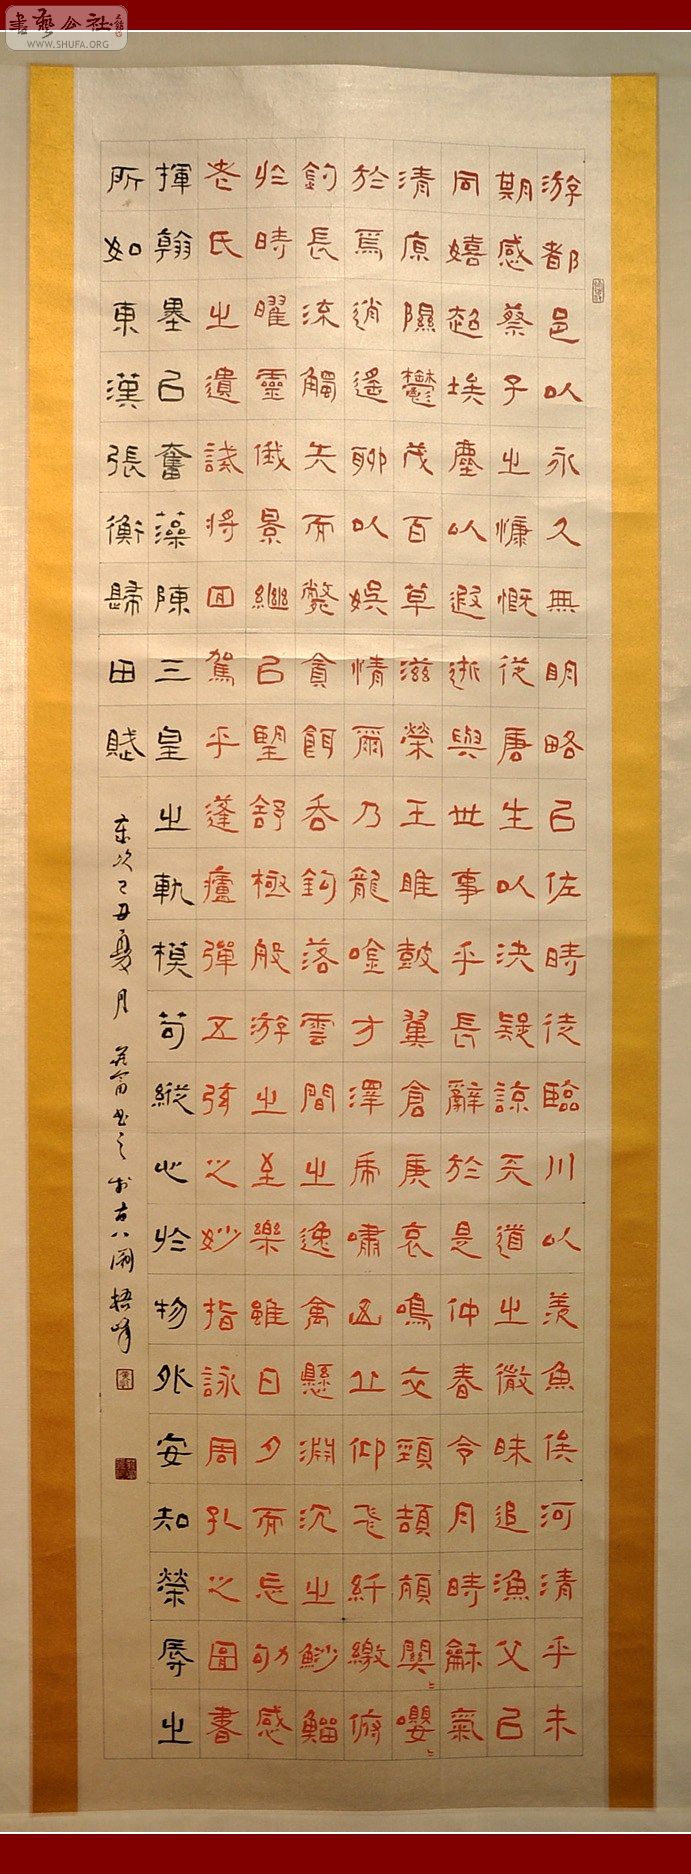 書藝公社
WWW.SHUFA.ORG
游都邑以永久無明略已佐時徒臨川以羨魚俟河清乎未
期感蔡子之慷慨從唐生以決疑諒天道之微昧追漁父已
同嬉超埃塵以遐逝與世事乎長辭於是仲春令月時龢氣
清原隰鬱茂百草滋榮王雎鼓翼倉庚哀鳴交頸頡頏關〻嚶〻
於焉逍遙聊以娛情爾乃龍唫方澤虎嘯山丘仰飛纖繳俯
釣長流觸矢而斃貪餌吞鉤落雲間之逸禽懸淵沉之魦鰡
於時曜靈俄景繼已望舒極般游之至樂雖日夕而忘劬感
老氏之遺誡將回駕乎蓬廬彈五弦之妙指詠周孔之圖書
揮翰墨已奮藻陳三皇之軌模苟縱心於物外安知榮辱之
所如東漢張衡歸田賦
歲次己丑夏月 書之於古八閩梧峰